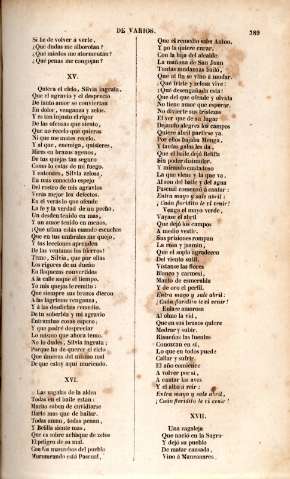 DE VARIOS.
389
Si he de volver á verlo,
¿Qué dudas me alborotan?
¿Qué miedos me atormentan?
¿Qué penas me congojan?
XV.
Quiera el cielo, Silvia ingrata,
Que el agravio y el desprecio
De tanto amor se conviertan
En dolor, venganza y celos.
Y es tan injusto el rigor
De las ofensas que siento,
Que no recelo que quieras
Ni que me mates recelo.
Y al que, enemiga, quisieres,
Mires en brazos agenos,
De tus quejas tan seguro
Como lo estás de mi fuego.
Y entonces, Silvia celosa,
En mas conocido espejo
Del rostro de mis agravios
Verás mejor los defectos.
En él verás lo que ofende
La fe y la verdad de un pecho,
Un desden tenido en mas,
Y un amor tenido en menos.
Que en tus umbrales me quejo,
Y tus lecciones aprenden
De las ventanas los hierros!
Teme, Silvia, que por ellas
Los rigores de su dueño
En lisonjeros convertidos
A la calle saque el tiempo.
Yo mis quejas te remito:
Que siempre mis brazos dieron
A las lágrimas venganza,
Y á las desdichas remedio.
De tu soberbia y mi agravio
Entrambas cosas espero,
Y que podré despreciar
Lo mismo que ahora temo.
No lo dudes, Silvia ingrata;
Porque ha de querer el cielo,
Que mueras del mismo mal
De que estoy aquí muriendo.
XVI.
Las zagalas de la aldea
Todas en el baile estan:
María sabe de envidiarse
Harto mas que de bailar.
Todas aman, todas penan,
Y Belilla siente mas,
Que es sobre achaque de celos
El peligro de su mal.
Con los mancebos del pueblo
Murmurando está Pascual,
Que el remedio sabe Anton,
Y no la quiere curar.
Con la hija del alcalde
La mañana de San Juan
Tantas mudanzas bailó,
Que al fin se vino á mudar.
¡Qué triste y celosa vive!
¡Qué desengañada está!
Que del que ofende y olvida
No tiene amor que esperar.
No divierte sus tristezas
El ver que de su lugar
Dejando alegres los campos
Quiere abril partirse ya.
Por ellos bajaba Menga,
Y tantas galas les da,
Que el baile dejó Belilla
Sin poder disimular.
Y mirando cuidadoso
La que viene y la que va,
Al son del baile y del agua
Pascual comenzó á cantar:
Entra mayo y sale abril,
¡Cuán floridito le vi venir!
Venga el mayo verde,
Vayase el abril
Que dejó los campos
A medio vestir.
Sus prisiones rompan
La rosa y jazmin,
Que el soplo agradecen
Del viento sutil.
Vístanse las flores
Blanco y carmesí,
Manto de esmeralda
Y de oro el perfil.
Entra mayo y sale abril,
¡Cuán floridito le vi venir!
Enlace amoroso
Al olmo la vid,
Que en sus brazos quiere
Medrar y subir.
Risueñas las fuentes
Conozcan en sí,
Lo que en todos puede
Callar y sufrir.
El año comience
A volver por sí,
A cantar las aves
Y el alba á reir:
Entra mayo y sale abril,
¡Cuán floridito le vi venir!
XVII.
Una zagaleja
Que nació en la Sagra
Y dejó su pueblo
De matar cansada,
Vino á Manzanares